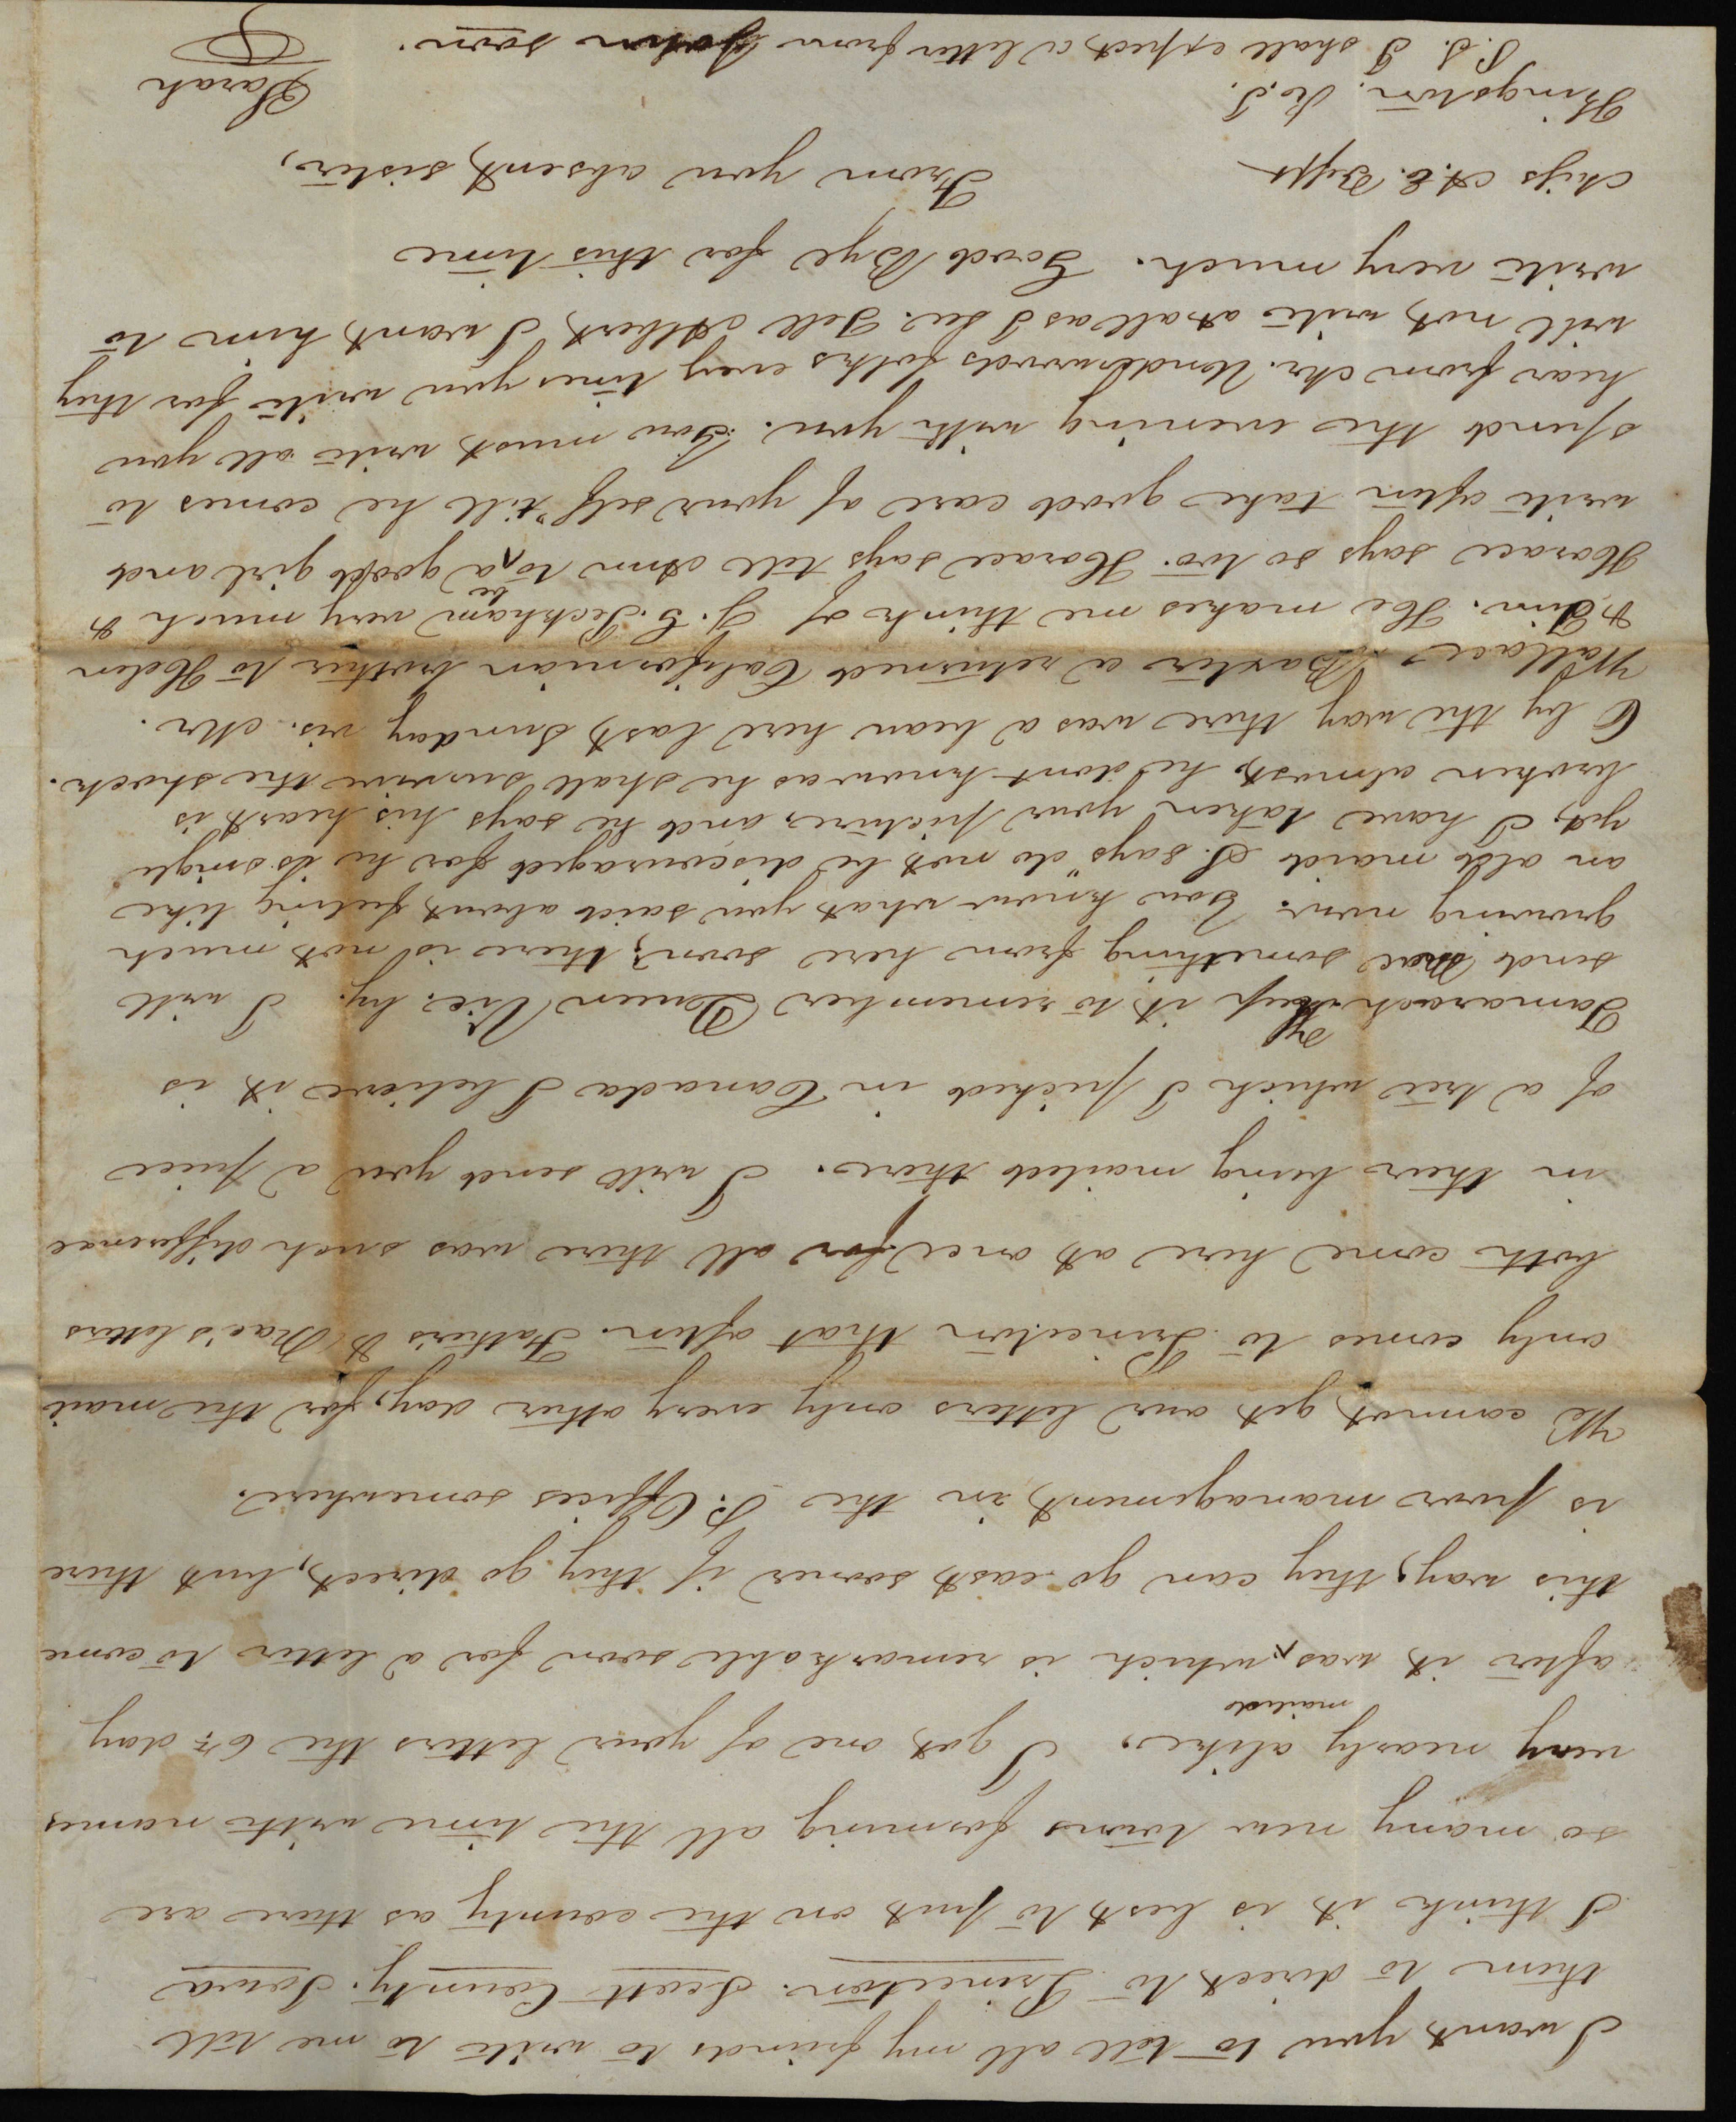 I want you to tell all my friends to write to me tell
them to direct to Princeton. Scott County. Iowa
I think it is best to put on the county as there are
so many new towns forming all the time with names
very nearly alike. I got one of your letters the 6th day
after it was mailed which is remarkable soon for a letter to come
this way, they can go east sooner if they go direct, but there
is poor management in the P. Offices somewhere.
We cannot get our letters only every other day, for the mail
only comes to Princeton that often. Father's & Mae's letters
both come here at once for all there was such difference
in their being mailed there. I will send you a piece
of a tree which I picked in Canada I believe it is
Tamarach. Keep it to remember Queen Vic. by. I will
send Mae something from here soon; there is not much
growing now. You know what you said about feeling like
an old maid S. says "do not be discouraged for he is single
yet, I have taken your picture, and he says his heart is
broken almost, he dont know as he shall survive the shock.
O by the way there was a beau here last Sunday vis. Mr.
Wallace Baxter a returned Californian brother to Helen
& Jim. He makes me think of J. C. Peckham very much &
Horace says so too. Horace says tell Ann to be a good girl and
write often take good care of your self "till he comes to
spend the evening with you. You must write all you
hear from Mr. Underwoods folks every time you write for they
will not write at all as I see. Tell Albert I want him to
write very much. Good Bye for this time
From you absent sister,
Miss A. E.
Kingston. R. I.
Sarah
P. S. I shall expect a letter from John soon.